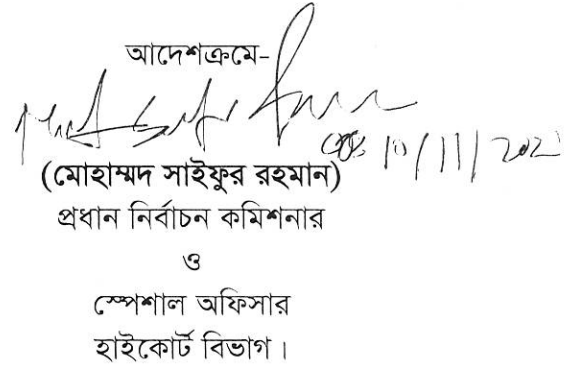 আদেশক্রমে-
(মোহাম্মদ সাইফুর রহমান)
প্রধান নির্বাচন কমিশনার
ও
স্পেশাল অফিসার
হাইকোর্ট বিভাগ।